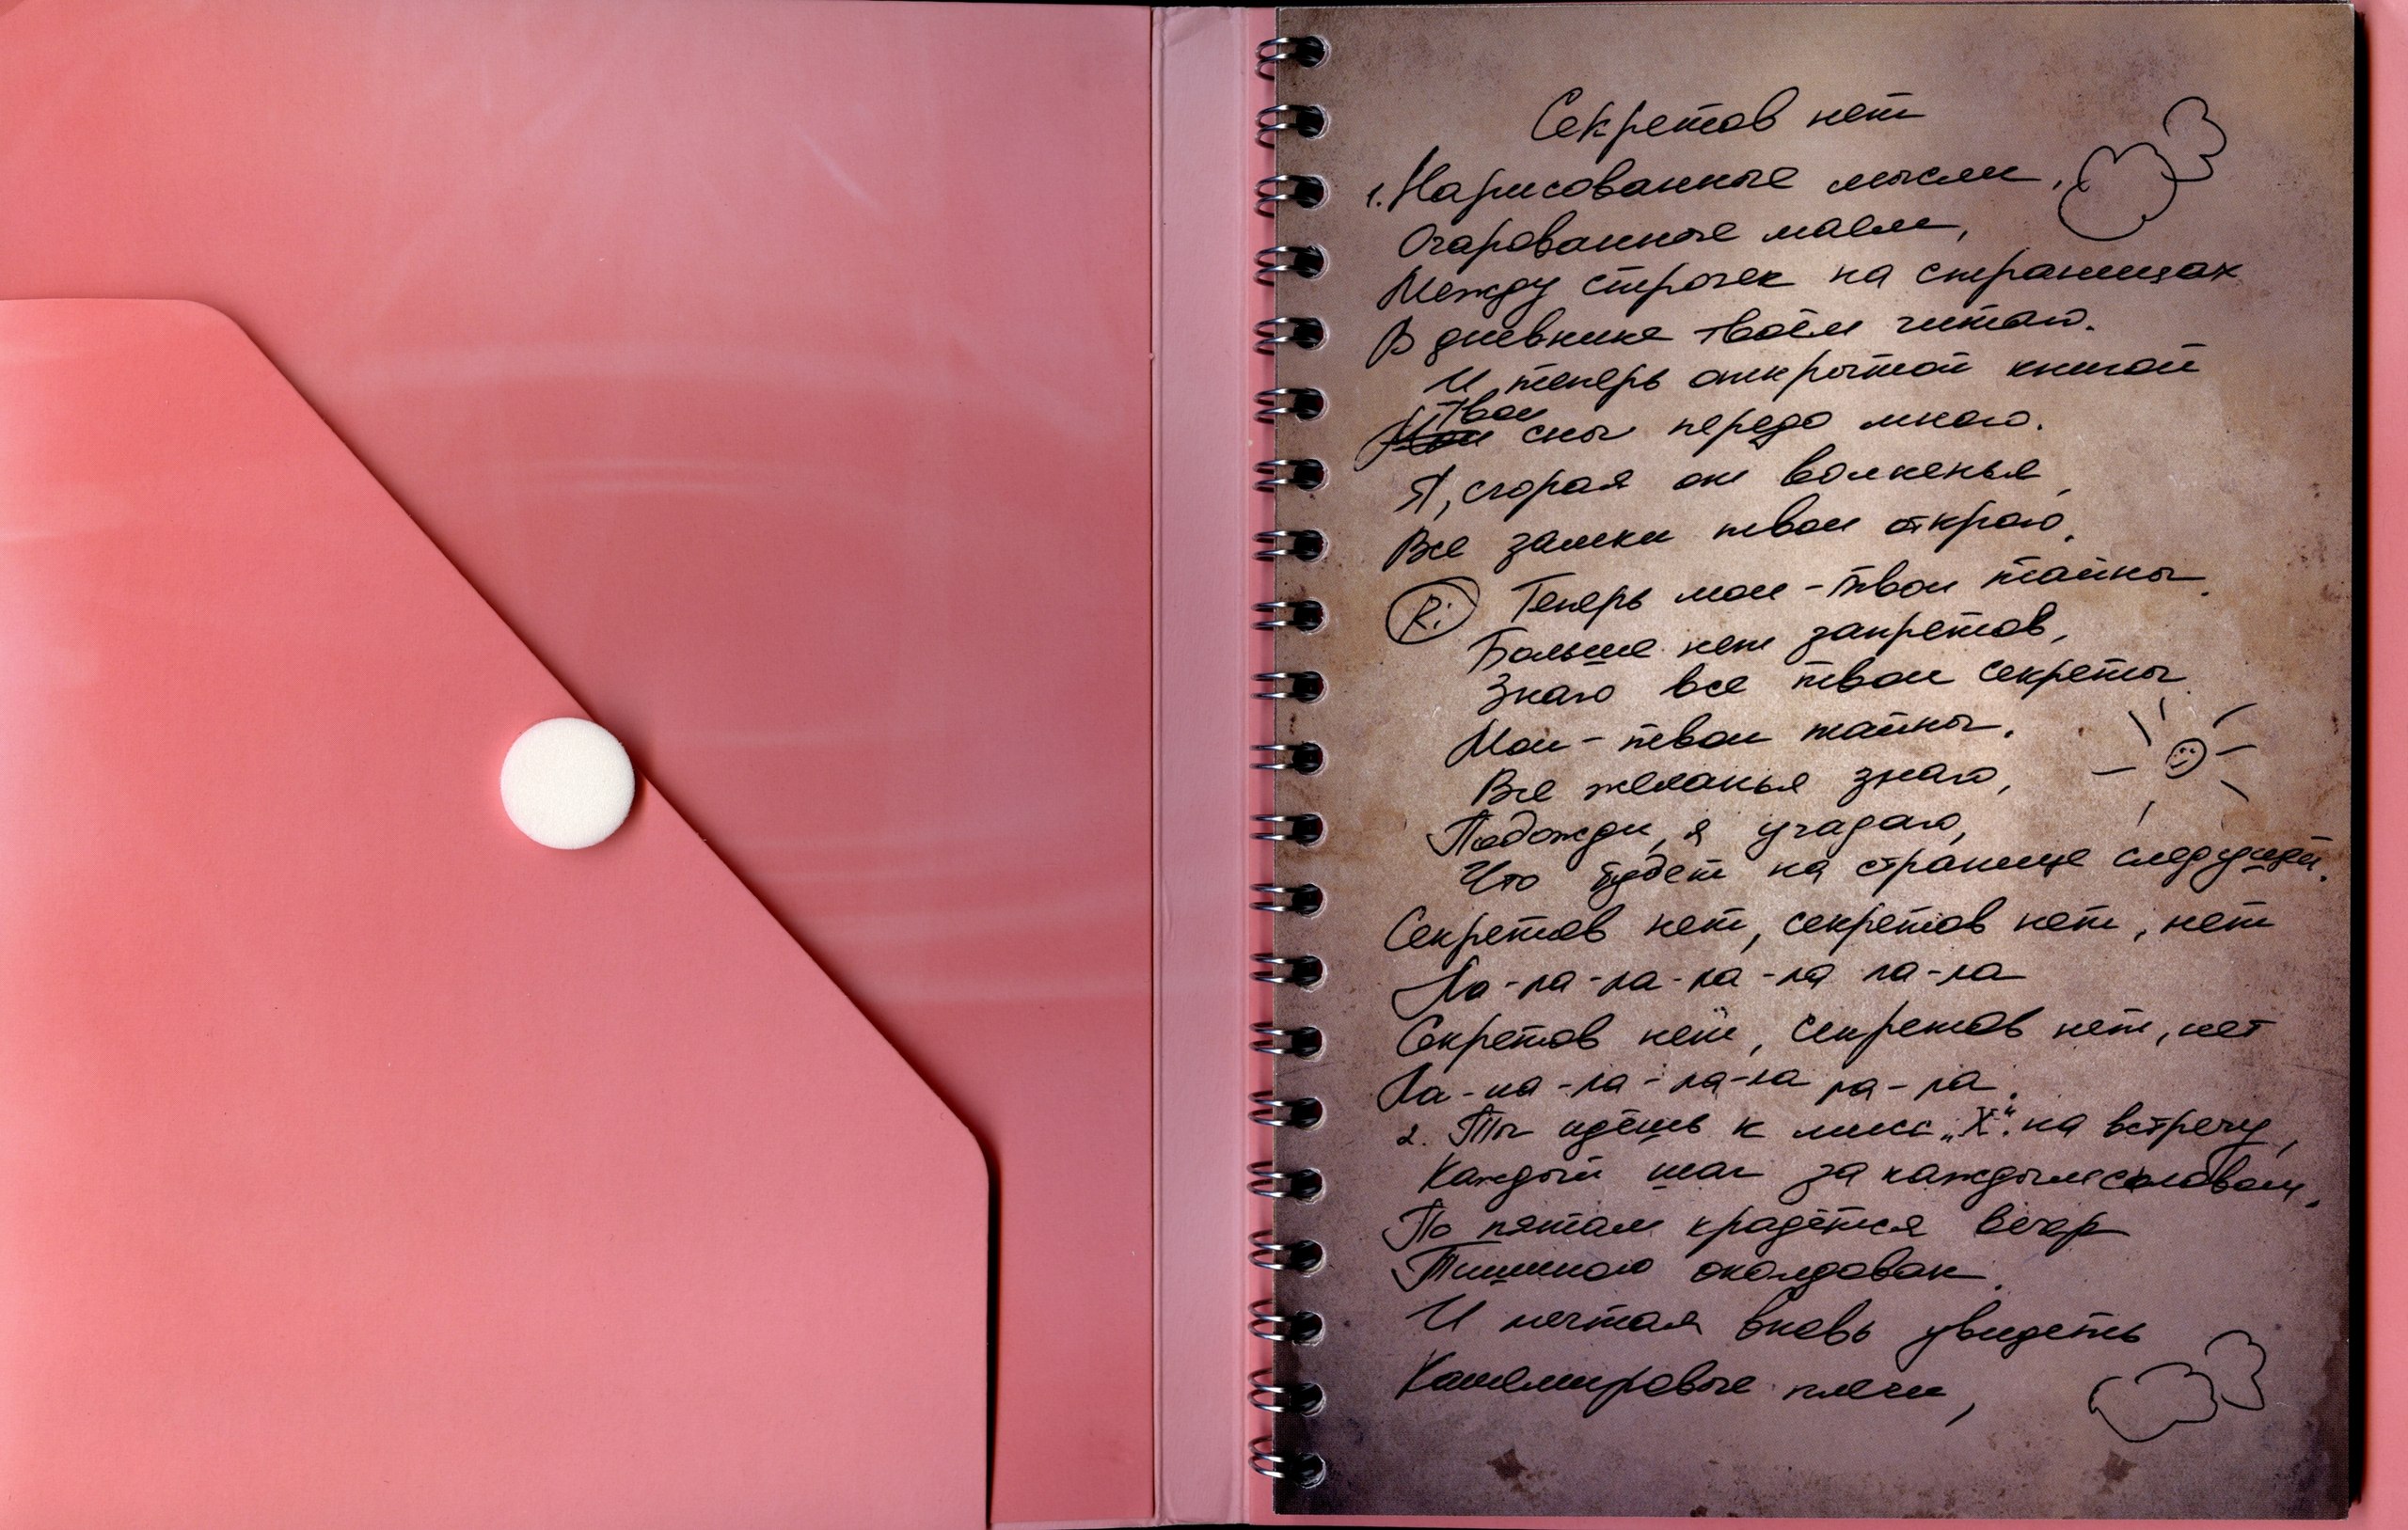 Секретов нет
1. Нарисованные мысли,
Очарованные маем,
Между строчек на страницах
В дневнике твоём читаю.
И теперь открытой книгой
Твои
Мои сны передо мною.
Я, сгорая от волненья,
Все замки твои открою.
R: Теперь мои-твои тайны.
Больше нет запретов,
Знаю все твои секреты.
Мои-твои тайны.
Все желанья знаю,
Подожди, я угадаю,
Что будет на странице следующей.
Секретов нет, секретов нет, нет
Ла-ла-ла-ла-ла ла-ла
Секретов нет, секретов нет, нет
Ла-ла-ла-ла-ла ла-ла.
2. Ты идёшь к мисс „X“ на встречу,
Каждый шаг за каждым словом,
По пятам крадётся вечер
Тишиною околдован.
И мечтая вновь увидеть
Кашемировые плечи,